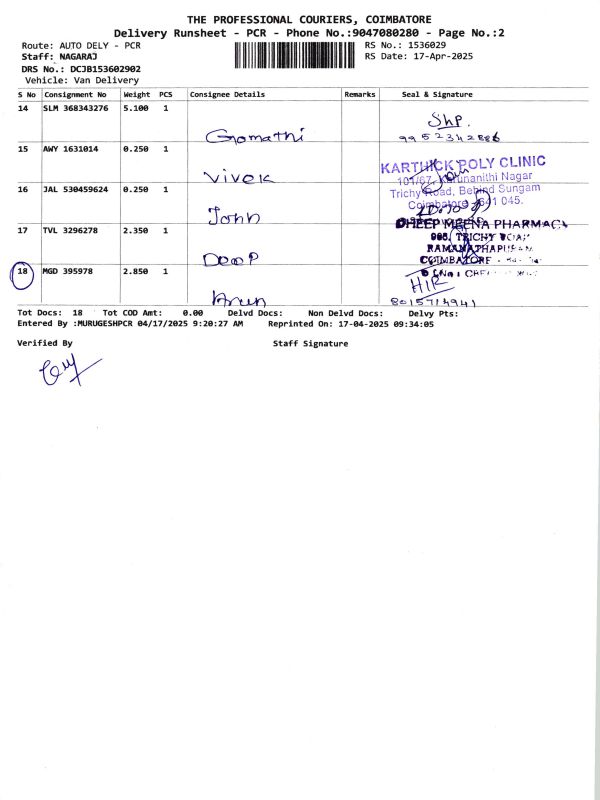 THE PROFESSIONAL COURIERS, COIMBATORE
Delivery Runsheet - PCR - Phone No.:9047080280 - Page No.:2
Route: AUTO DELY - PCR
RS No.: 1536029
Staff: NAGARAJ
RS Date: 17-Apr-2025
DRS No.: DCJB153602902
Vehicle: Van Delivery
S No Consignment No Weight PCS Consignee Details Remarks Seal & Signature
14 SLM 368343276 5.100 1
Shp.
Gomathi 9952342886
15 AWY 1631014 0.250 1
Vivek
KARTHICK POLY CLINIC
101/67, Karunanithi Nagar
16 JAL 530459624 0.250 1
Trichy Road, Behind Sungam
Coimbatore - 641 045.
John
17 TVL 3296278 2.350 1
DHEEP MEENA PHARMACY
986, TRICHY ROAD
RAMANATHAPURAM
Deep
COIMBATORE
18 MGD 395978 2.850 1
HIR
Arun 8015714941
Tot Docs: 18 Tot COD Amt: 0.00 Delvd Docs: Non Delvd Docs: Delvy Pts:
Entered By :MURUGESHPCR 04/17/2025 9:20:27 AM Reprinted On: 17-04-2025 09:34:05
Verified By Staff Signature